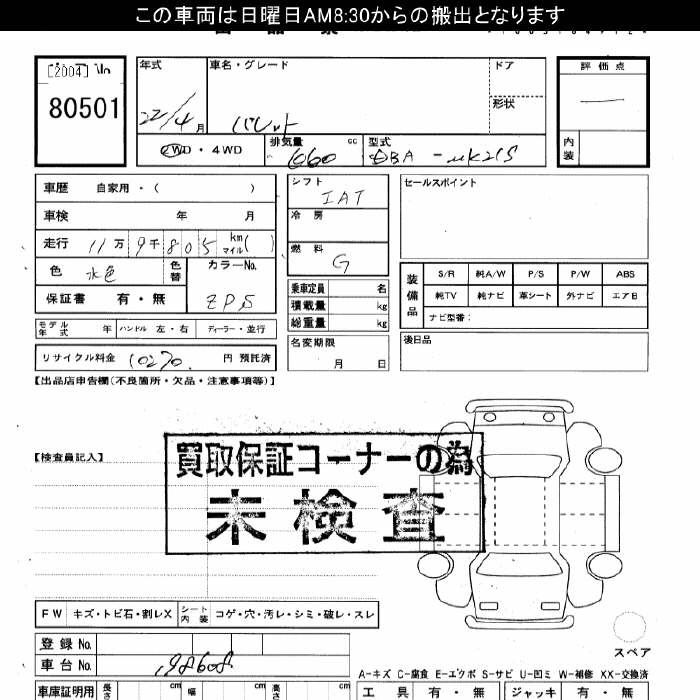 この車両は日曜日AM8:30からの搬出となります
[2004]
80501
年式
22/4月
車名・グレード
パレット
ドア
形状
評価点
内装
2WD・4WD
排気量
660 cc
型式
DBA-MK21S
車歴 自家用・( )
車検 年 月
走行 11万9千805 km マイル( )
色 水色 色替
カラーNo.
ZPS
保証書 有・無
モデル年式 年 ハンドル 左・右 ディーラー・並行
リサイクル料金 10270 円 預託済
シフト
IAT
冷房
燃料
G
乗車定員 名
積載量 kg
総重量 kg
名変期限
月 日
セールスポイント
装備品
S/R 純A/W P/S P/W ABS
純TV 純ナビ 革シート 外ナビ エアB
ナビ型番:
後日品
【出品店申告欄(不良箇所・欠品・注意事項等)】
【検査員記入】
買取保証コーナーの為
未検査
FW キズ・トビ石・割レX シート内装 コゲ・穴・汚レ・シミ・破レ・スレ
登録No.
車台No. 198608
スペア
A-キズ C-腐食 E-エクボ S-サビ U-凹ミ W-補修 XX-交換済
車庫証明用 長さ cm 幅 cm 高さ cm
工具 有・無 ジャッキ 有・無